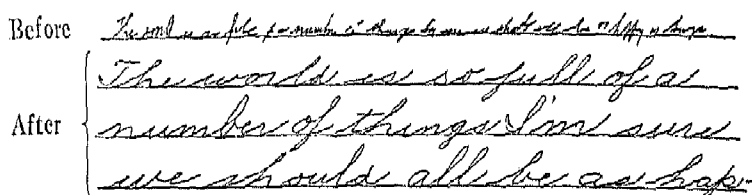 Before The world is so full of a number of things I'm sure we should all be as happy as kings
The world is so full of a
After number of things I'm sure
we should all be as hap-